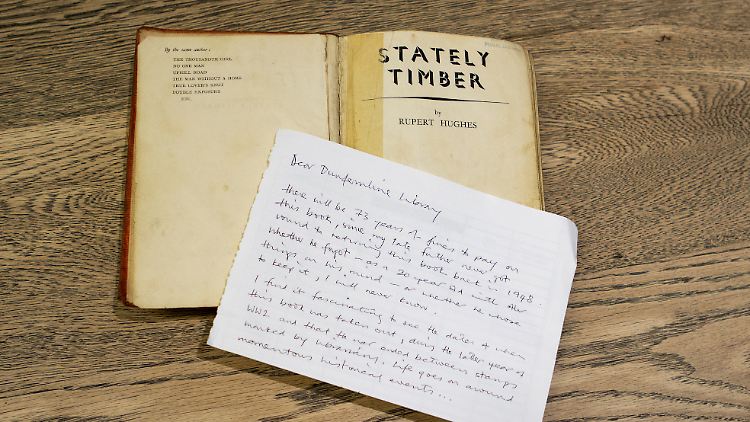 By the same author:
THE THOUSANDTH GIRL
NO ONE MAN
UPHILL ROAD
THE MAN WITHOUT A HOME
DOUBLE EXPOSURE
ETC.
STATELY
TIMBER
by
RUPERT HUGHES
Dear Dunfermline Library
there will be 73 years of fines to pay on
this book, since my late father never got
round to returning this book back in 1948.
Whether he forgot – as a 20 year old with other
things on his mind – or whether he chose
to keep it, I will never know.
I find it fascinating to see the dates of when
this book was taken out, during the later years of
WW2 and that the war ended between stamps
marked by librarians. Life goes on around
momentous historical events...